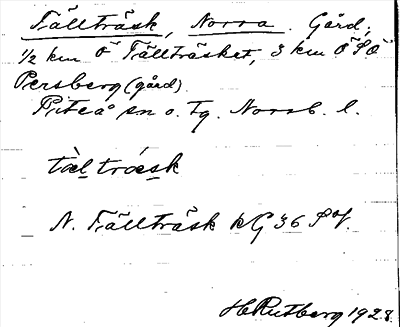 Tällträsk, Norra. Gård;
1/2 km Ö Tällträsket, 3 km Ö S Ö
Persberg (gård).
Piteå sn o. tg. Norrb. l.
tæ̀l trǽsk
N. Tällträsk kG 36
H Rutberg 1928.